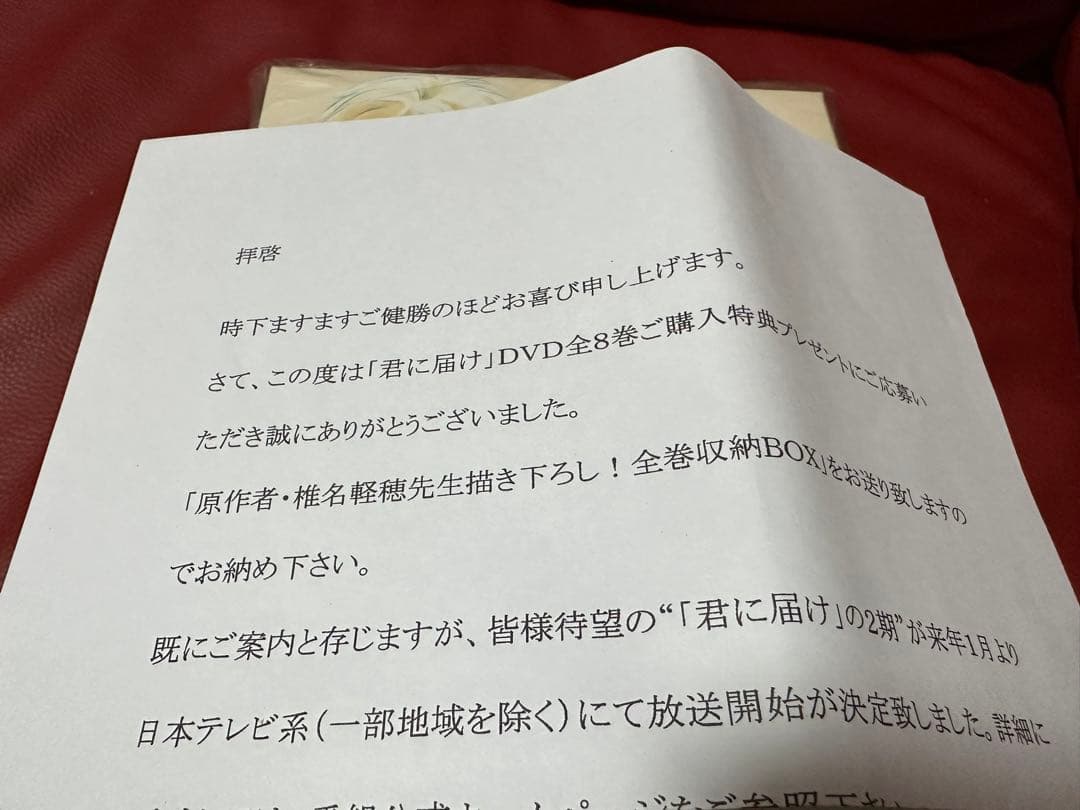 拝啓
時下ますますご健勝のほどお喜び申し上げます。
さて、この度は「君に届け」DVD全8巻ご購入特典プレゼントにご応募い
ただき誠にありがとうございました。
「原作者・椎名軽穂先生描き下ろし!全巻収納BOX」をお送り致しますの
でお納め下さい。
既にご案内と存じますが、皆様待望の“「君に届け」の2期”が来年1月より
日本テレビ系(一部地域を除く)にて放送開始が決定致しました。詳細に
ページをご参照下さい